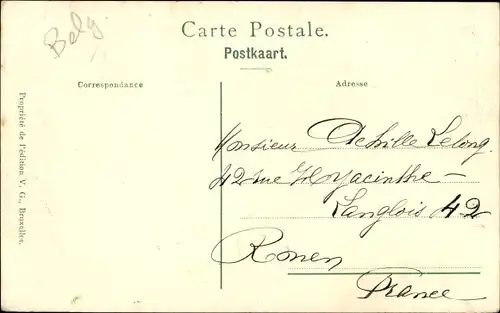 Belg
Carte Postale.
Postkaart.
Correspondance
Adresse
Propriété de l'édition V. G., Bruxelles.
Monsieur Achille Lelong
42 rue Hyacinthe -
Langlois 42
Rouen
France